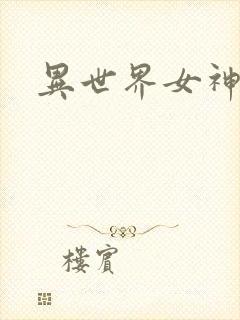 異世界女神
樓賓